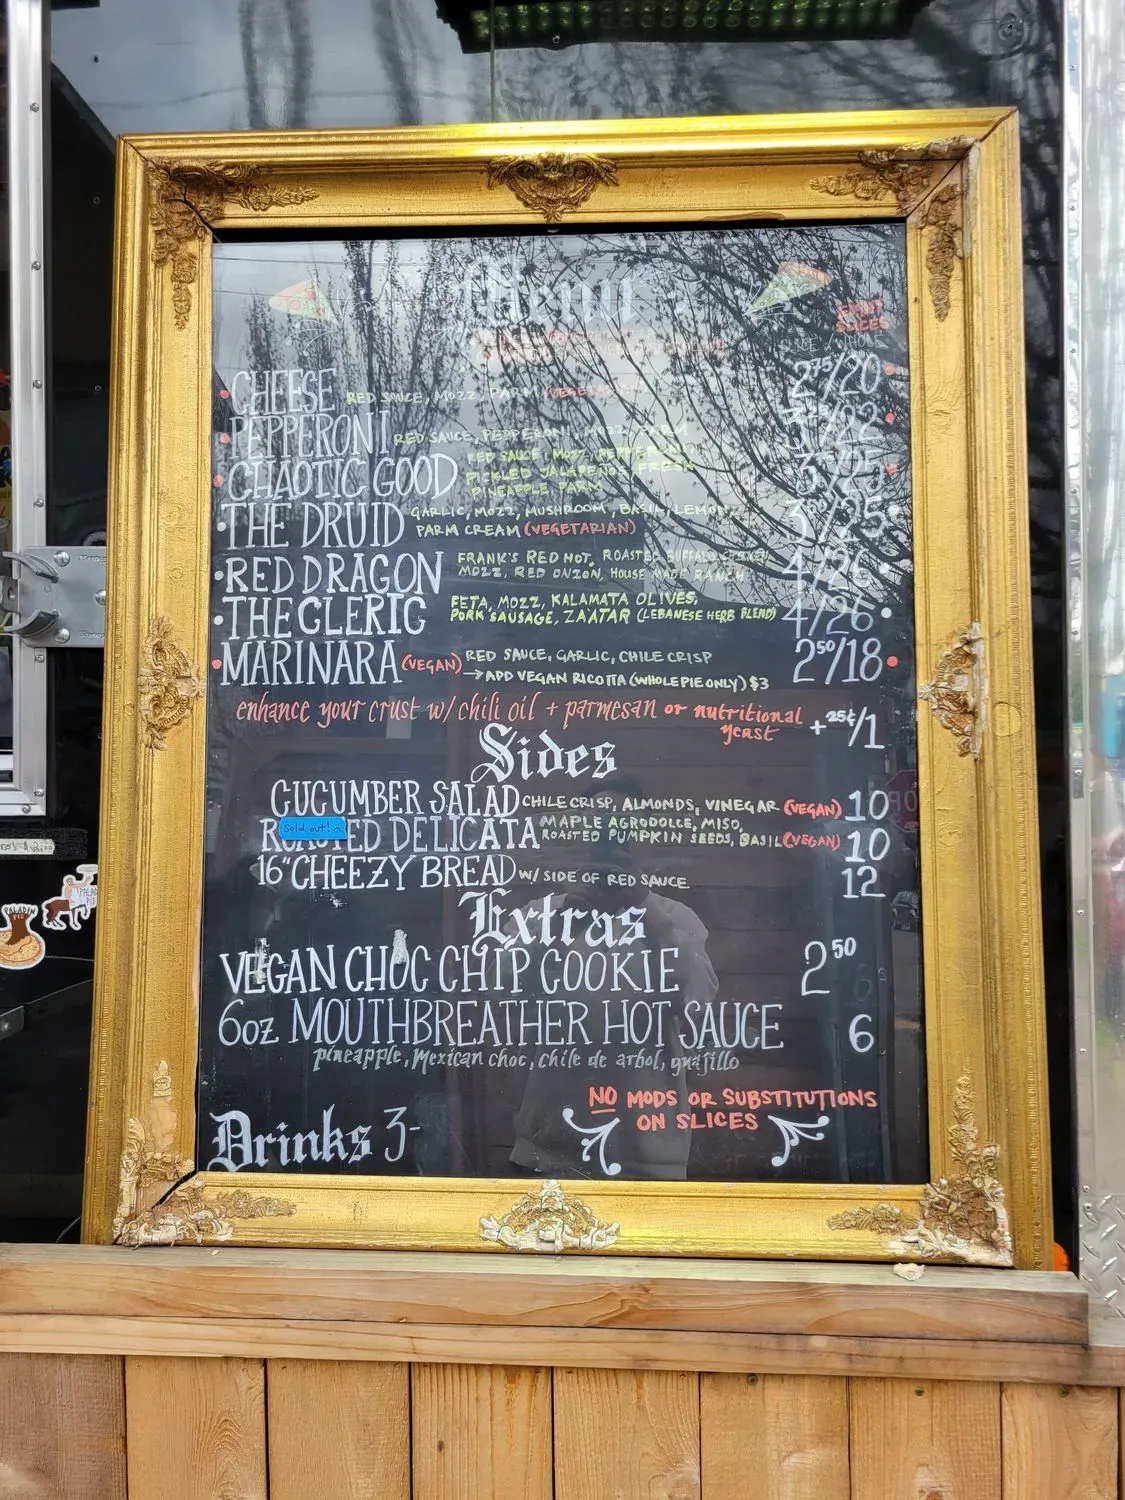 Menu
SLICES
CHEESE RED SAUCE, MOZZ, PARM 2⁷⁵/20
PEPPERONI RED SAUCE, PEPPERONI, MOZZ, /22
CHAOTIC GOOD RED SAUCE, MOZZ, PEPPERONI /25
PICKLED JALAPENOS, FRESH
PINEAPPLE PARM
THE DRUID GARLIC, MOZZ, MUSHROOM, BASIL, LEMON /25
PARM CREAM (VEGETARIAN)
RED DRAGON FRANK'S RED HOT, ROASTED BUFFALO CHICKEN 4/26
MOZZ, RED ONION, HOUSE MADE RANCH
THE CLERIC FETA, MOZZ, KALAMATA OLIVES, 4/26
PORK SAUSAGE, ZAATAR (LEBANESE HERB BLEND)
MARINARA (VEGAN) RED SAUCE, GARLIC, CHILE CRISP 2⁵⁰/18
→ADD VEGAN RICOTTA (WHOLE PIE ONLY) $3
enhance your crust w/ chili oil + parmesan or nutritional yeast +25¢/1
Sides
CUCUMBER SALAD CHILE CRISP, ALMONDS, VINEGAR (VEGAN) 10
Sold out!
DELICATA MAPLE AGRODOLCE, MISO, 10
ROASTED PUMPKIN SEEDS, BASIL (VEGAN)
16" CHEEZY BREAD W/ SIDE OF RED SAUCE 12
Extras
VEGAN CHOC CHIP COOKIE 2⁵⁰
6oz MOUTHBREATHER HOT SAUCE 6
pineapple, Mexican choc, chile de arbol, guajillo
NO MODS OR SUBSTITUTIONS
ON SLICES
Drinks 3-
PALADIN
PIE